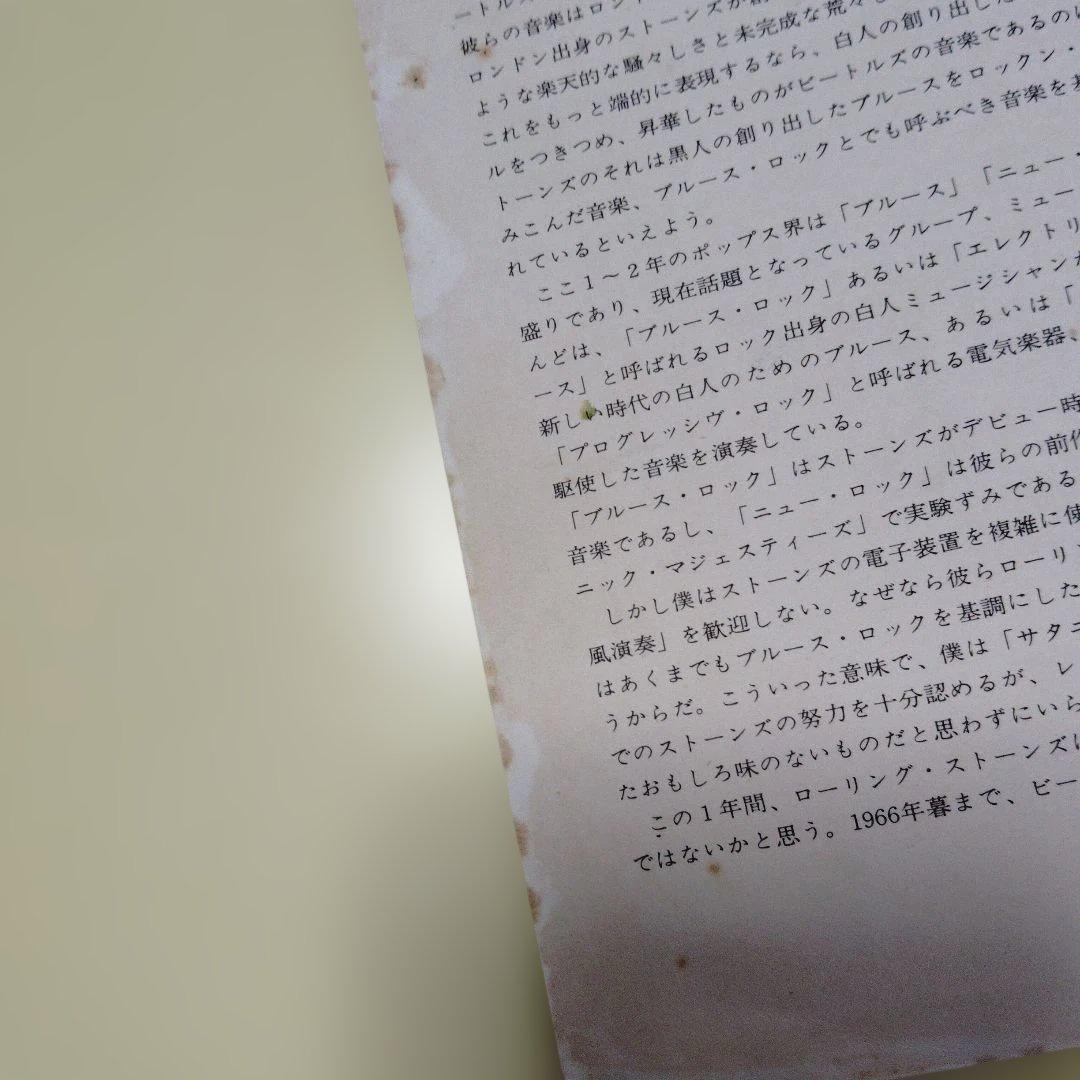 ートルズ
彼らの音楽はロンド
ロンドン出身のストーンズが創
ような楽天的な騒々しさと未完成な荒々し
これをもっと端的に表現するなら、白人の創り出した
ルをつきつめ、昇華したものがビートルズの音楽であるのに
トーンズのそれは黒人の創り出したブルースをロックン・
みこんだ音楽、ブルース・ロックとでも呼ぶべき音楽を基
れているといえよう。
ここ1～2年のポップス界は「ブルース」「ニュー・
盛りであり、現在話題となっているグループ、ミュー
んどは、「ブルース・ロック」あるいは「エレクトリ
ース」と呼ばれるロック出身の白人ミュージシャンが
新しい時代の白人のためのブルース、あるいは「
「プログレッシヴ・ロック」と呼ばれる電気楽器、
駆使した音楽を演奏している。
「ブルース・ロック」はストーンズがデビュー時
音楽であるし、「ニュー・ロック」は彼らの前作
ニック・マジェスティーズ」で実験ずみである
しかし僕はストーンズの電子装置を複雑に使
風演奏」を歓迎しない。なぜなら彼らローリン
はあくまでもブルース・ロックを基調にした
うからだ。こういった意味で、僕は「サタニ
でのストーンズの努力を十分認めるが、レ
たおもしろ味のないものだと思わずにいら
この1年間、ローリング・ストーンズに
ではないかと思う。1966年暮まで、ビー